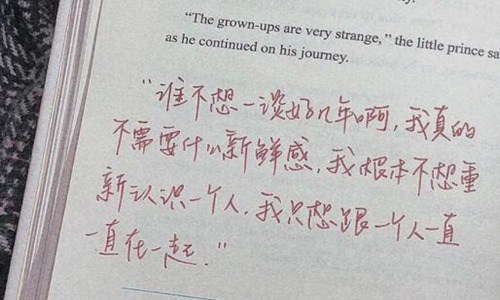 "The grown-ups are very strange," the little prince sa
as he continued on his journey.
"谁不想一谈好几年啊,我真的
不需要什么新鲜感,我根本不想重
新认识一个人,我只想跟一个人一直
一直在一起."